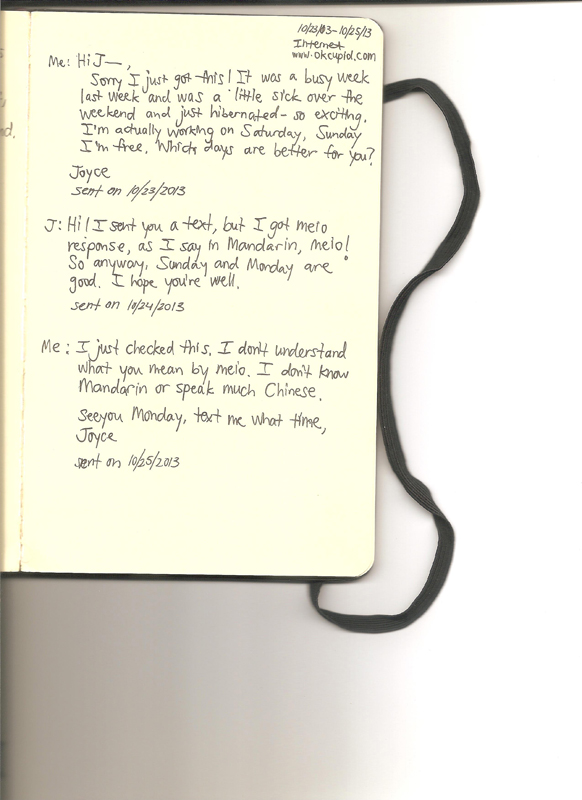 10/23/03-10/25/13
Internet
www.okcupid.com
Me: Hi J—,
Sorry I just got this! It was a busy week
last week and was a little sick over the
weekend and just hibernated - so exciting.
I'm actually working on Saturday, Sunday
I'm free. Which days are better for you?
Joyce
sent on 10/23/2013
J: Hi! I sent you a text, but I got meio
response, as I say in Mandarin, meio!
So anyway, Sunday and Monday are
good. I hope you're well.
sent on 10/24/2013
Me: I just checked this. I don't understand
what you mean by meio. I don't know
Mandarin or speak much Chinese.
See you Monday, text me what time,
Joyce
sent on 10/25/2013